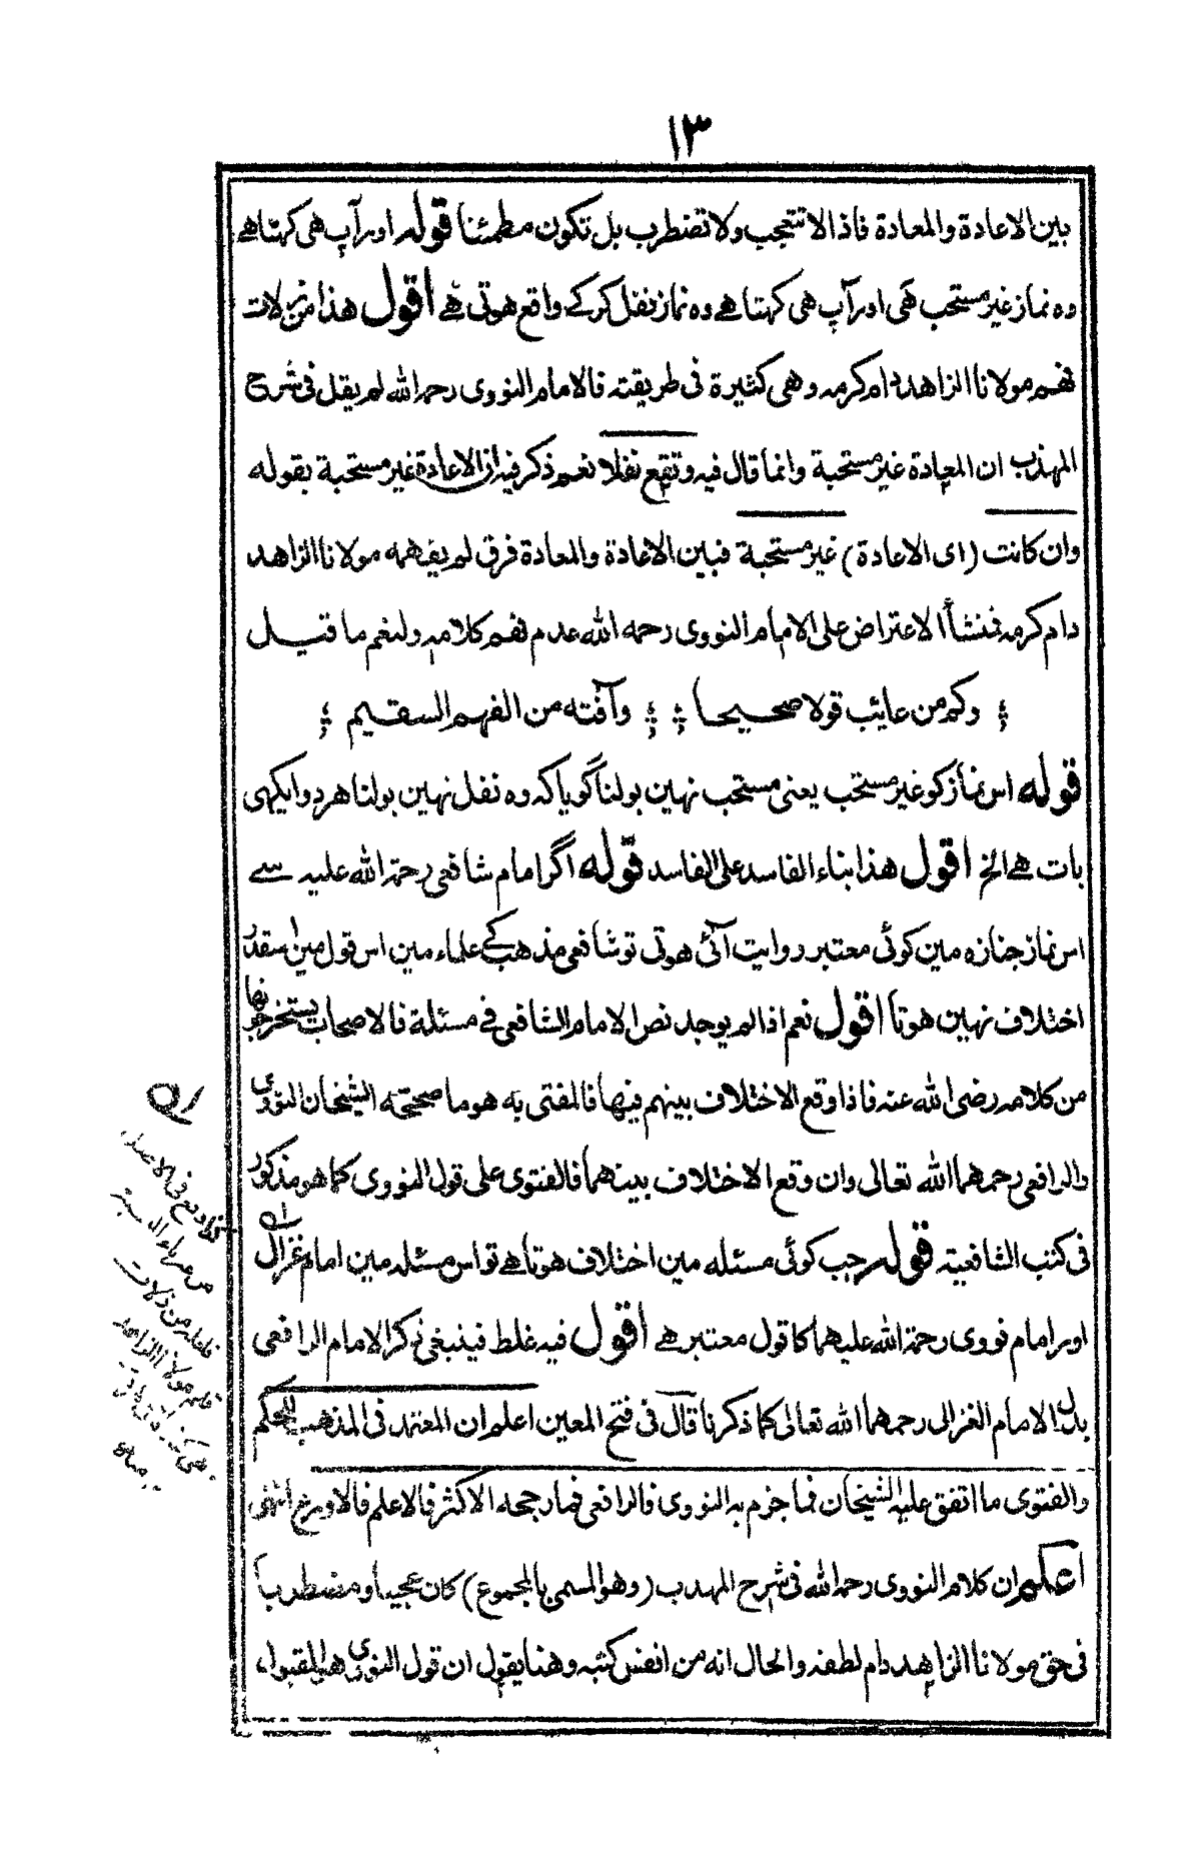 ۱۳
بين الاعادة والمعادة فاذا لا تتعجب ولا تضطرب بل تكون مطمئنا قوله اور آپ هى كهتا هے
وه نماز غير مستحب هى اور آپ هى كهتا هے وه نماز نفل كركے واقع هوتى هے اقول هذا من زلات
فهم مولانا الزاهد دام كرمه وهى كثيرة فى طريقته فالامام النووى رحمه الله لم يقل فى شرح
المهذب ان المعادة غير مستحبة وانما قال فيه وتقع نفلا نعم ذكر فيه ان الاعادة غير مستحبة بقوله
وان كانت (اى الاعادة) غير مستحبة فبين الاعادة والمعادة فرق لم يفهمه مولانا الزاهد
دام كرمه فنشأ الاعتراض على الامام النووى رحمه الله عدم فهم كلامه ولنعم ما قيل
وكم من عائب قولا صحيحا وآفته من الفهم السقيم
قوله اس نماز كو غير مستحب يعنى مستحب نهين بولنا گويا كه وه نفل نهين بولنا هردو ايكهى
بات هے الخ اقول هذا بناء الفاسد على الفاسد قوله اگر امام شافعى رحمة الله عليه سے
اس نماز جنازه مين كوئى معتبر روايت آئى هوتى تو شافعى مذهب كے علماء مين اس قول مين اسقدر
اختلاف نهين هوتا اقول نعم اذا لم يوجد نص الامام الشافعى فى مسئلة فالاصحاب يستخرجونها
من كلامه رضى الله عنه فاذا وقع الاختلاف بينهم فيها فالمفتى به هو ما صححه الشيخان النووى
والرافعى رحمهما الله تعالى وان وقع الاختلاف بينهما فالفتوى على قول النووى كما هو مذكور
فى كتب الشافعية قوله جب كوئى مسئله مين اختلاف هوتا هے تو اس مسئله مين امام غزال
اور امام نووى رحمة الله عليهما كا قول معتبر هے اقول فيه غلط فينبغى ذكر الامام الرافعى
بدل الامام الغزالى رحمهما الله تعالى كما ذكرنا قال فى فتح المعين اعلم ان المعتمد فى المذهب للحكم
والفتوى ما اتفق عليه الشيخان فما جزم به النووى فالرافعى فما رجحه الاكثر فالاعلم فالاورع انتهى
اعلم ان كلام النووى رحمه الله فى شرح المهذب (وهو المسمى بالمجموع) كان عجيبا ومضطربا
فى حق مولانا الزاهد دام لطفه والحال انه من انفس كتبه وهنا يقول ان قول النووى هو المقبول
كذا وقع فى الاصل